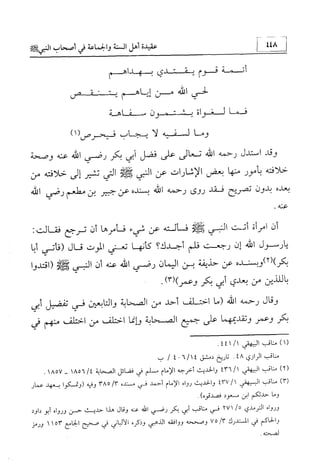 ١١٨
عقيدة أهل السنة والجماعة في أصحاب النبي ﷺ
أئمـة قـوم يقـتـدي بـهـداهـم
لحي الله مـن إيـاهـم يتـنـقـص
فمـا لـغـواة يشـتمـون سـفـاهـة
ومـا لسفـيه لا يـجـاب فـيـحـرص (١)
وقد استدل رحمه الله تعالى على فضل أبي بكر رضي الله عنه وصحة
خلافته بأمور منها بعض الإشارات عن النبي ﷺ التي تشير إلى خلافته من
بعده بدون تصريح فقد روى رحمه الله بسنده عن جبير بن مطعم رضي الله
عنه.
أن امرأة أتت النبي ﷺ فسألته عن شيء فأمرها أن ترجع فقالت:
يارسول الله إن رجعت فلم أجدك؟ كأنها تعني الموت قال (فأتي أبا
بكر)(٢) وبسنده عن حذيفة بن اليمان رضي الله عنه أن النبي ﷺ (اقتدوا
باللذين من بعدي أبي بكر وعمر)(٣).
وقال رحمه الله (ما اختلف أحد من الصحابة والتابعين في تفضيل أبي
بكر وعمر وتقديمهما على جميع الصحابة وإنما اختلف من اختلف منهم في
(١) مناقب البيهقي ٤٤١/١.
مناقب الرازي ٤٨. تاريخ دمشق ٤٠٦/١٤ / ب
(٢) مناقب البيهقي ٤٣٦/١ والحديث أخرجه الإمام مسلم في فضائل الصحابة ١٨٥٦/٤ - ١٨٥٧.
(٣) مناقب البيهقي ٤٣٧/١ والحديث رواه الإمام أحمد في مسنده ٣٨٥/٣ وفيه (وتمسكوا بعهد عمار
وما حدثكم ابن مسعود فصدقوه).
ورواه الترمذي ٢٧١/٥ في مناقب أبي بكر رضي الله عنه وقال هذا حديث حسن ورواه أبو داود
والحاكم في المستدرك ٧٥/٣ وصححه ووافقه الذهبي وذكره الألباني في صحيح الجامع ١١٥٣ ورمز
لصحته.